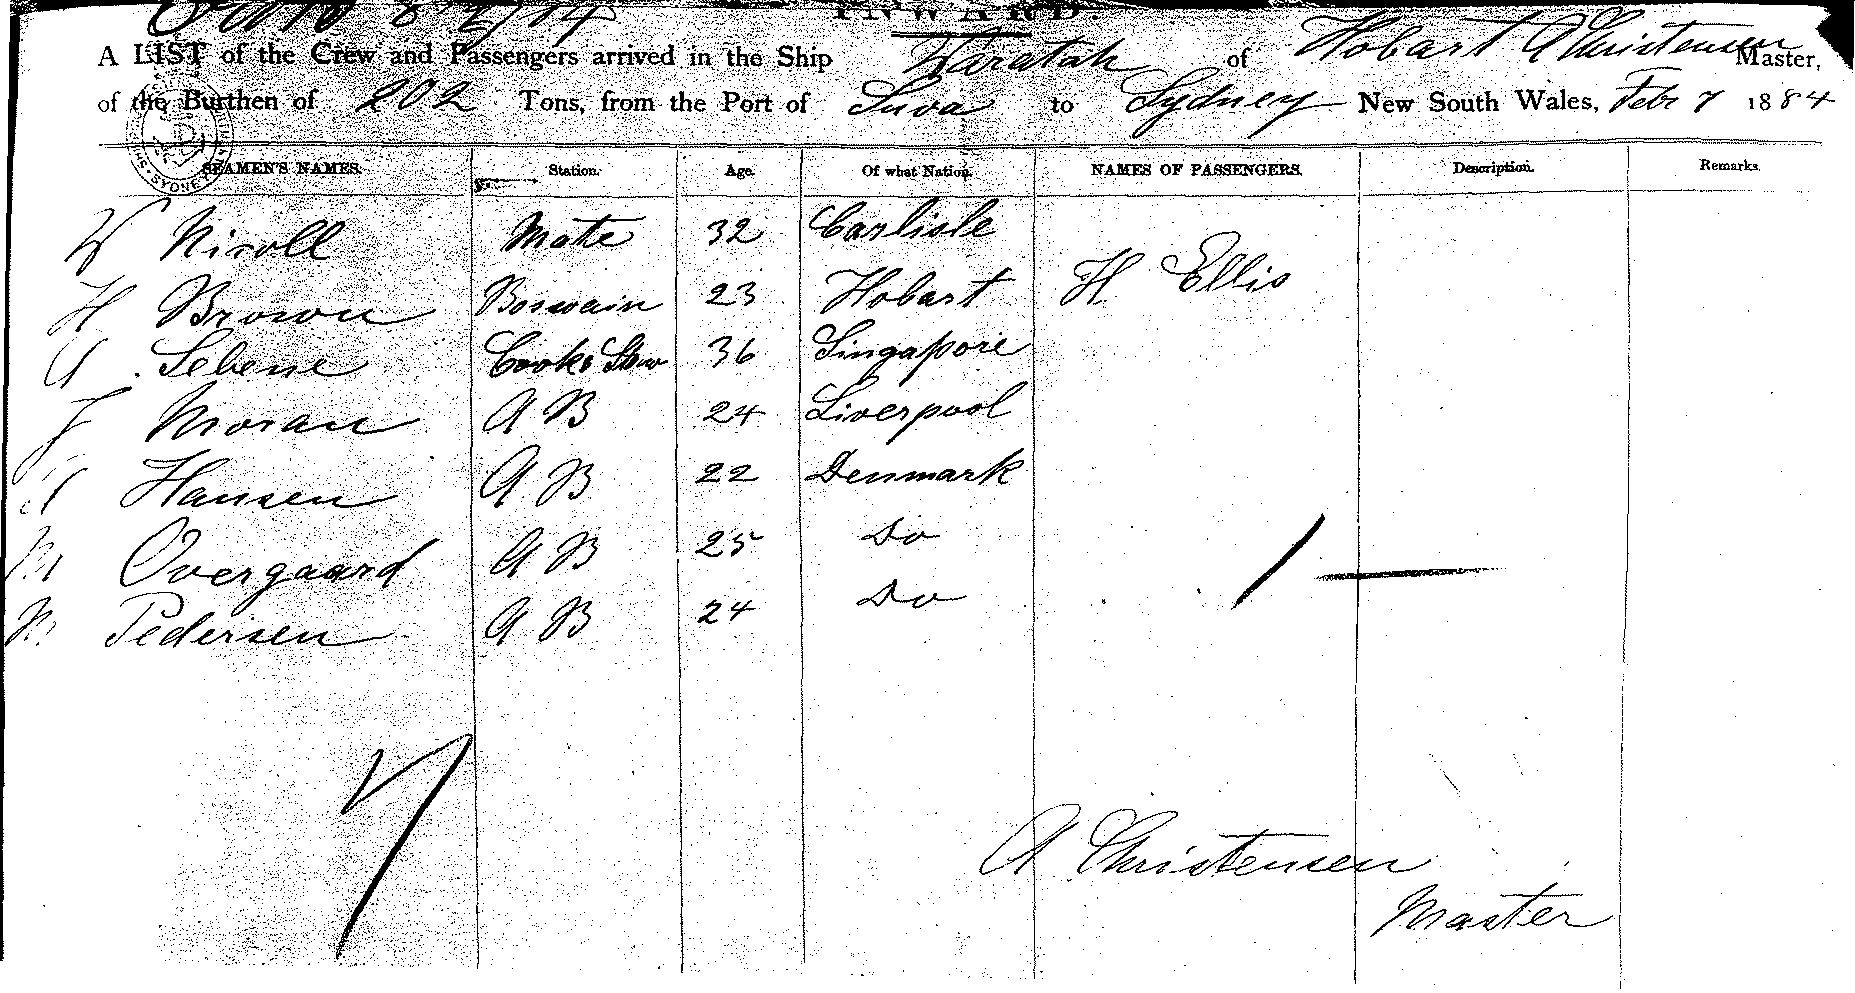 INWARD.
A LIST of the Crew and Passengers arrived in the Ship Waratah of Hobart A Christensen Master,
of the Burthen of 202 Tons, from the Port of Suva to Sydney New South Wales, Feb 7 1884
SEAMEN'S NAMES. Station. Age. Of what Nation. NAMES OF PASSENGERS. Description. Remarks.
W Nicoll Mate 32 Carlisle
H Brown Boswain 23 Hobart H Ellis
A Selene Cook & Stew 36 Singapore
J Moran A B 24 Liverpool
Hansen A B 22 Denmark
M Overgaard A B 25 Do
M. Pedersen A B 24 Do
7 1
A Christensen
Master